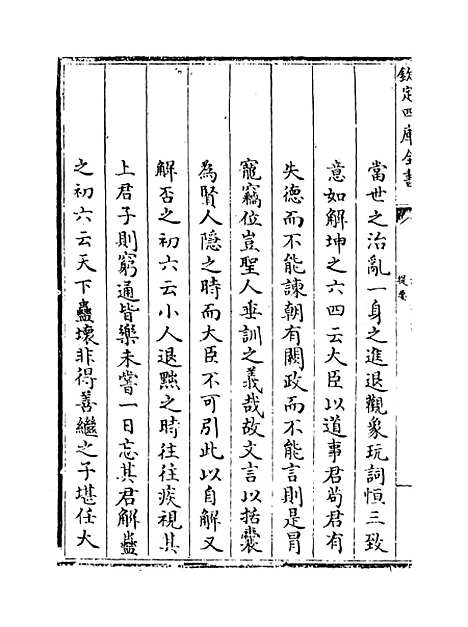 欽定四庫全書
提要
當世之治亂一身之進退觀象玩詞恒三致
意如解坤之六四云大臣以道事君茍君有
失德而不能諫朝有闕政而不能言則是冐
寵竊位豈聖人垂訓之義哉故文言以括囊
為賢人隠之時而大臣不可引此以自解又
解否之初六云小人退黜之時往往疾視其
上君子則窮通皆樂未嘗一日忘其君解蠱
之初六云天下蠱壞非得善繼之子堪任大